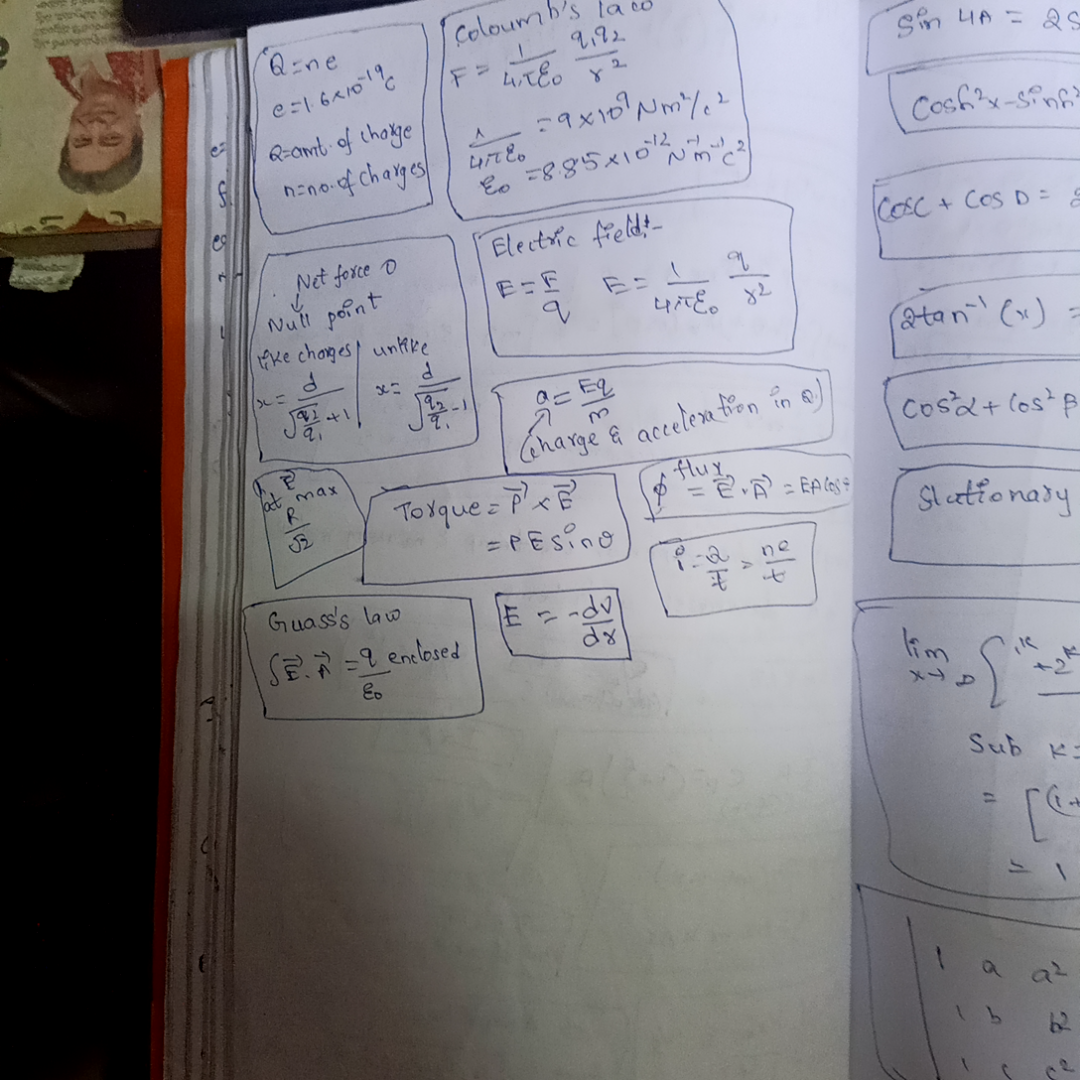 Q=ne
e=1.6×10⁻¹⁹c
Q=amt. of charge
n=no. of charges
Coloumb's law
F = 1/4πε₀ q₁q₂/r²
1/4πε₀ = 9×10⁹ Nm²/c²
ε₀ = 8.85×10⁻¹² N⁻¹m⁻¹c²
Net force 0
↓
Null point
like charges | unlike
x = d/√(q₂/q₁)+1 | x = d/√(q₂/q₁)-1
Electric field:-
E = F/q E = 1/4πε₀ q/r²
a = Eq/m
Charge & acceleration in Q
E
at max
R/√2
Torque = P⃗ × E⃗
= PE Sinθ
flux
ϕ = E⃗.A⃗ = EA Cos
i = Q/t = ne/t
Guass's law
∫E⃗.A⃗ = q enclosed/ε₀
E = -dV/dr
Sin 4A = 2S
Cosh²x - Sinh²
CosC + CosD =
2tan⁻¹ (x) =
Cos²α + Cos²β
Stationary
lim x→0
Sub K=
= [(1+
= 1
1 a a²
1 b b²
1 c c²